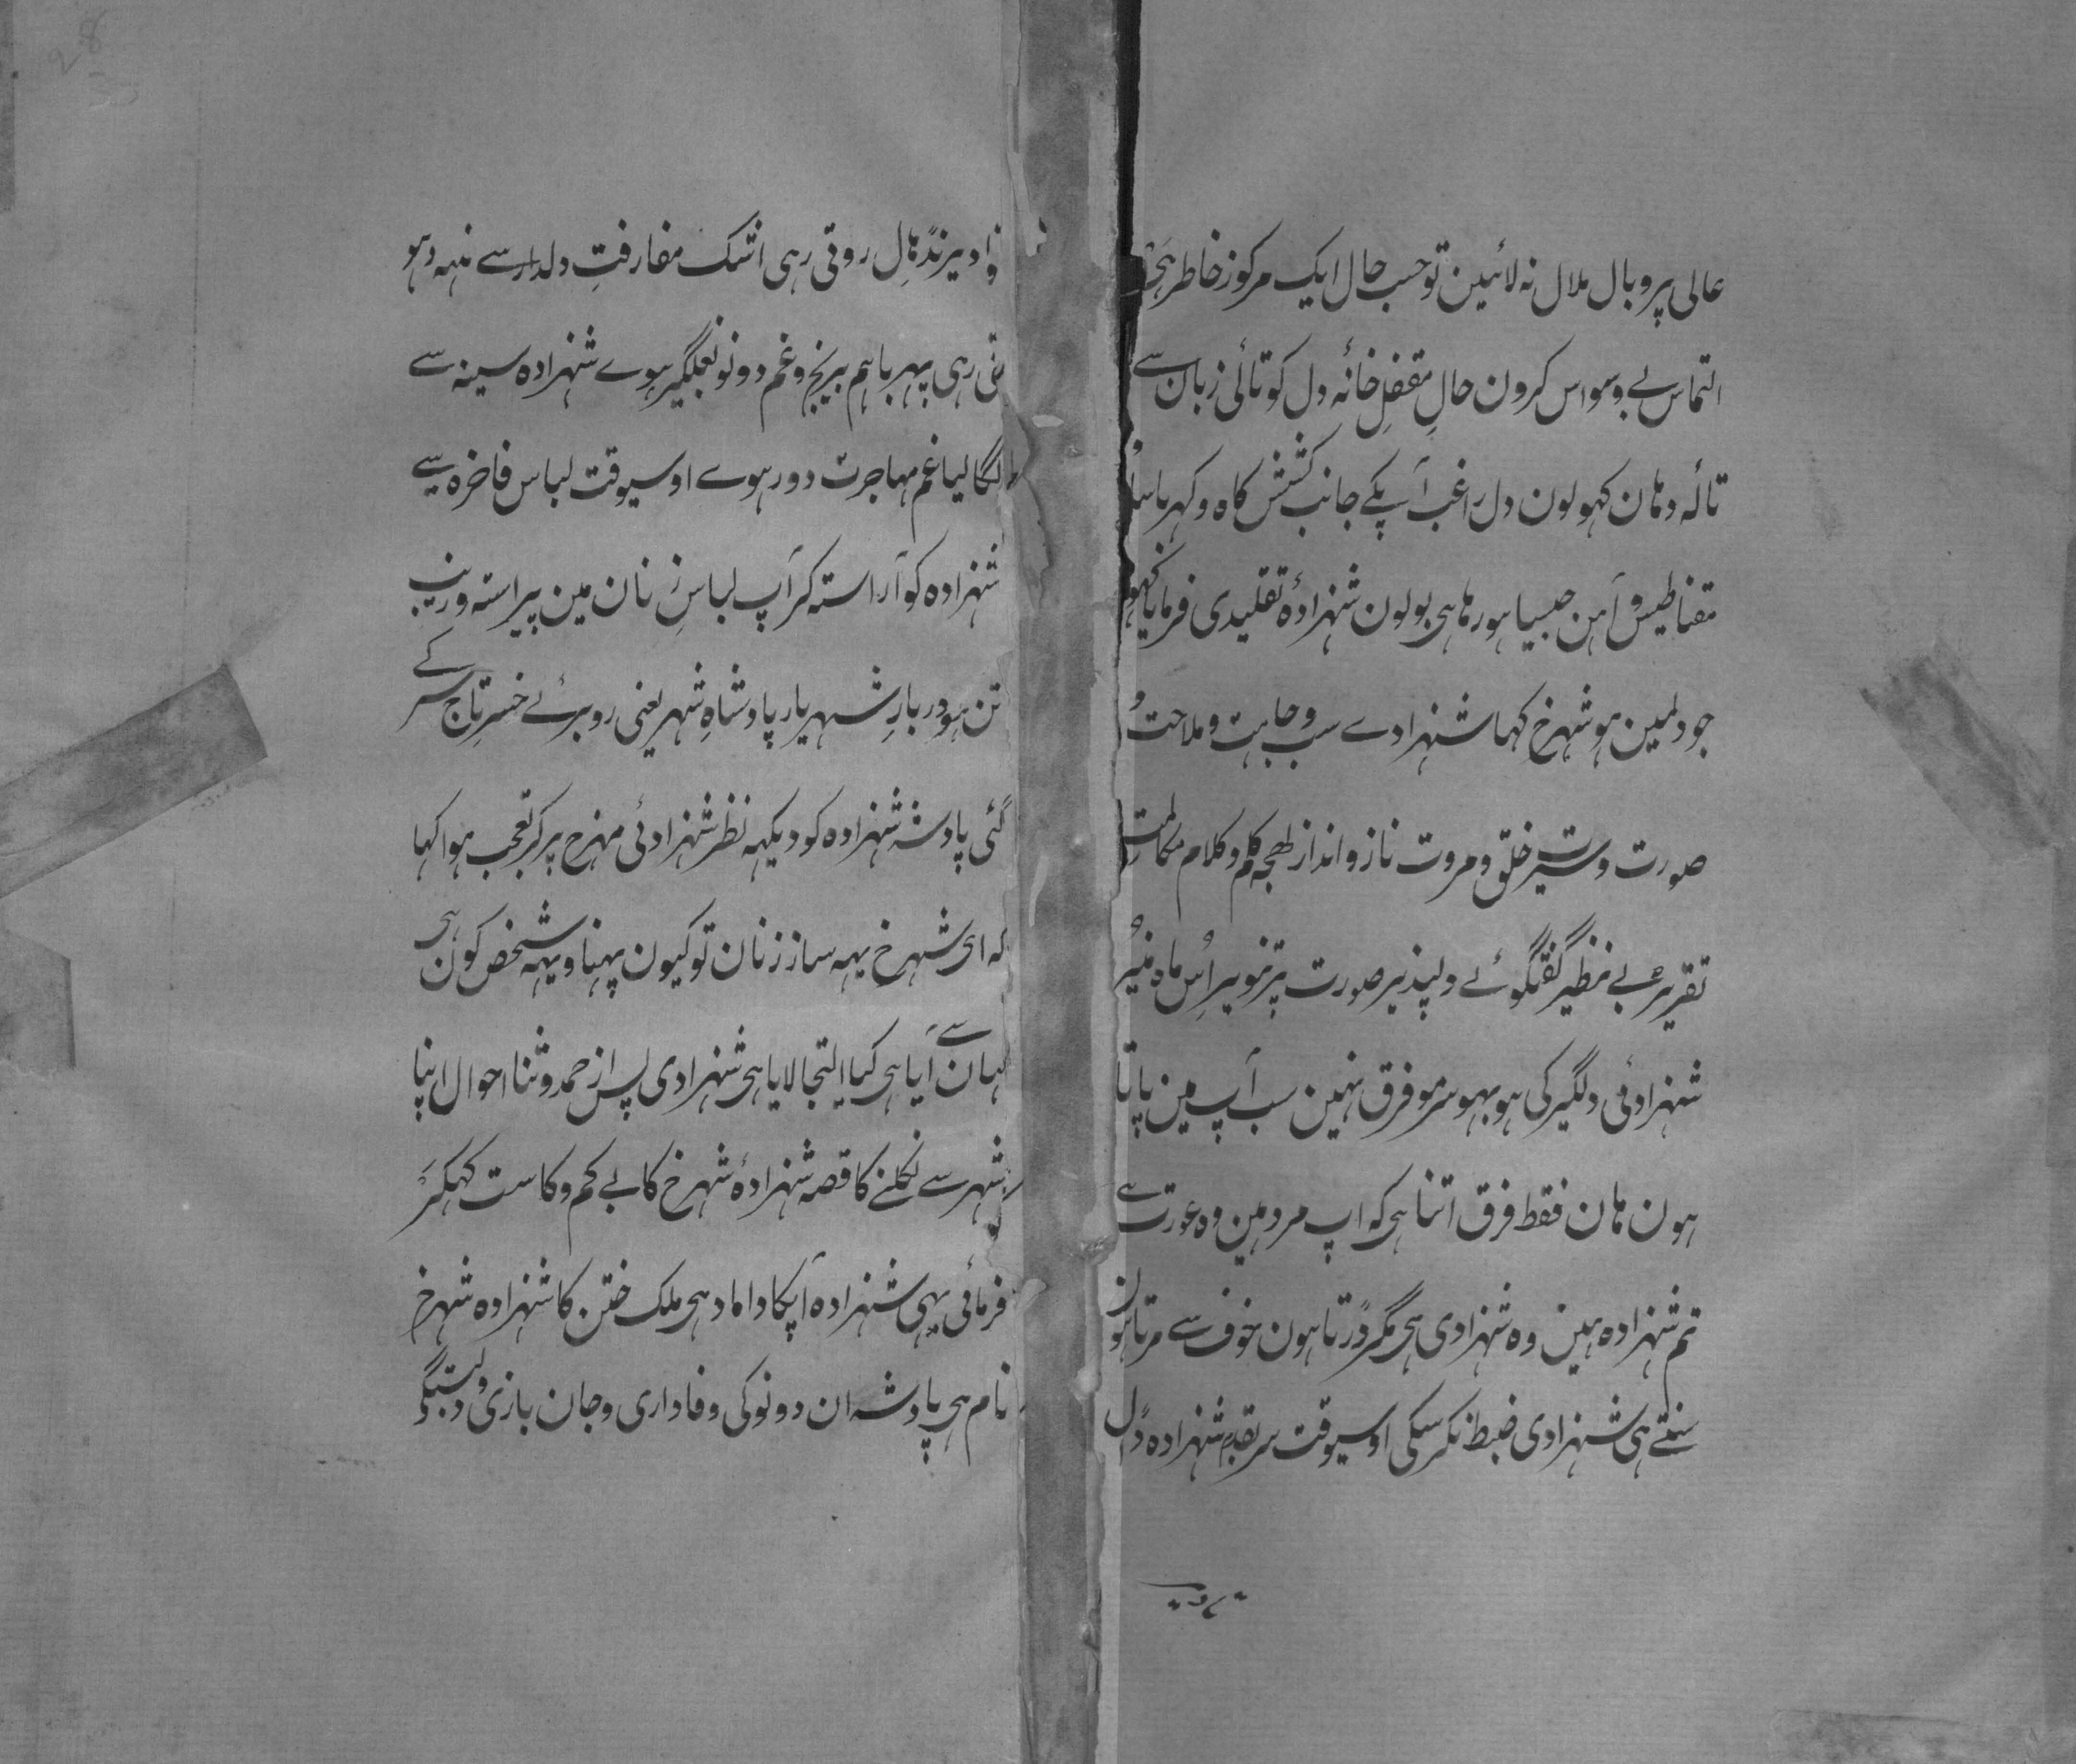 عالی پر وبال ملال نہ لائین تو حسب حال ایک مرکوز خاطر ہی
التماس بے وسواس کرون حالِ مقفلِ خانٔہ دل کو تالٔی زبان سے
تألہ دہان کہولون دل راغب آپکے جانب کشش کاہ وکہربا
مقناطیس و آہن جیسا ہو رہا ہی بولون شہزادۂ تقلیدی فرمایا کہو
جو دلمین ہو شہرخ کہا شہزادے سب وجاہت و ملاحت
صورت و سیرت خلق و مروت ناز و انداز لہجہ تکلم و کلام
تقریر بے نظیر گفتگوئے دلپذیر صورت پرتنویر اُس ماہ منیر
شہزادئی دلگیر کی ہو بہو سرمو فرق نہین سب آپ مین پاتا
ہون ہان فقط فرق اتنا ہی کہ اپ مرد ہین وہ عورت ہے
تم شہزادہ ہین وہ شہزادی ہی مگر ڈرتا ہون خوف سے مرتا ہون
سنتے ہی شہزادی ضبط نکر سکی اوسیوقت سر بقدم شہزادہ ڈال
رومال روتی رہی اشک مفارقتِ دلدار سے منہہ دہو
تی رہی پہر باہم برنج وغم دونو بغلگیر ہوے شہزادہ سینہ سے
لگا لیا غم مہاجرت دور ہوے اوسیوقت لباس فاخرہ سے
شہزادہ کو آراستہ کر آپ لباسِ زنان مین پیراستہ و زیب
تن ہو دربارِ شہریار پادشاہِ شہر یعنی روبروئے خسرِ تاج سر کے
گئی پادشہ شہزادہ کو دیکہہ نظر شہزادئی مہرخ پر کر تعجب ہوا کہا
کہ ای شہرخ یہہ ساز زنان تو کیون پہنا و یہہ شخص کون ہی
کہان سے آیا ہی کیا التجا لایا ہی شہزادی پس از حمد و ثنا احوال اپنا
شہر سے نکلنے کا قصہ شہزادۂ شہرخ کا بے کم و کاست کہکر
فرمائی یہی شہزادہ آپکا داماد ہی ملک ختن کا شہزادہ شہرخ
نام ہی پادشہ ان دونو کی وفاداری و جان بازی و دلبستگی